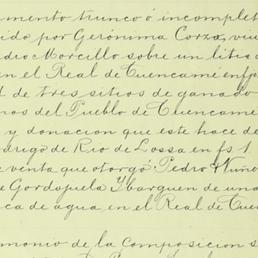 mento trunco ó incomplet
ido por Gerónima Corzo, viu
dro Morcillo sobre un litis o
en el Real de Cuencamé en f
l de tres sitios de ganado
nos del Pueblo de Cuencame
y donacion que este hace de
drigo de Rio de Lossa en fs 1
e venta que otorgó Pedro Nuño
e Gordopuela Ybarguen de una
ca de agua, en el Real de Cue
monio de la Composicion s